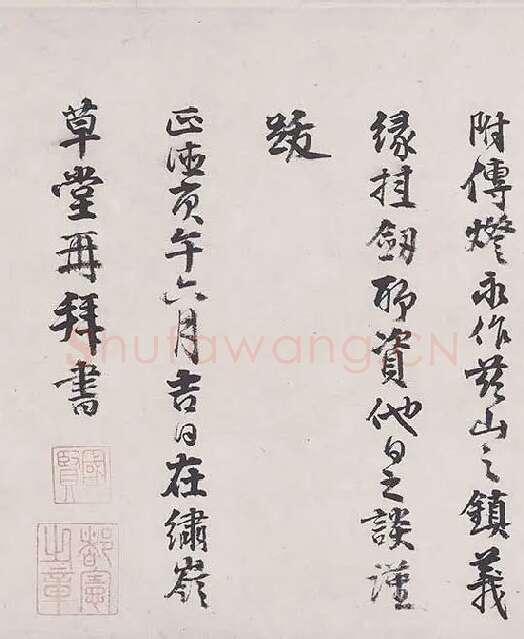 附傳燈永作茲山之鎮義
緣挂劒聊資他日之談謹
跋
正德庚午六月吉日在繡嶺
草堂再拜書
國賢
都憲之章
Shufawang.CN